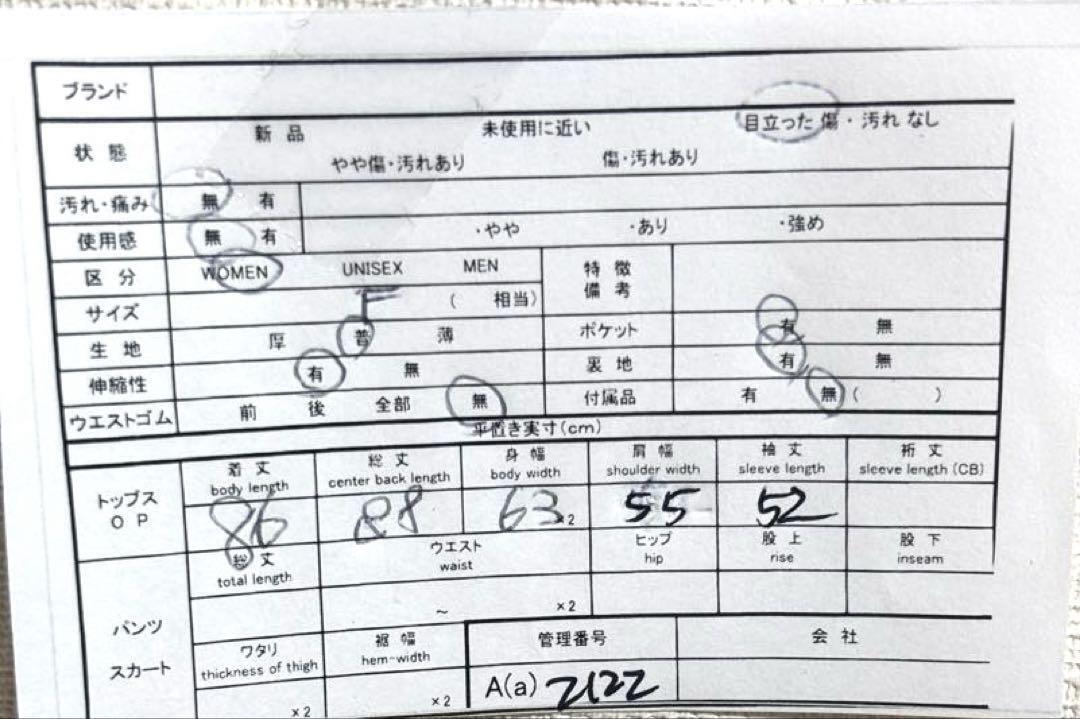 ブランド
状態 新品 未使用に近い 目立った傷・汚れなし
やや傷・汚れあり 傷・汚れあり
汚れ・痛み 無 有
使用感 無 有 ・やや ・あり ・強め
区分 WOMEN UNISEX MEN 特徴備考
サイズ F ( 相当)
生地 厚 普 薄 ポケット 有 無
伸縮性 有 無 裏地 有 無
ウエストゴム 前 後 全部 無 付属品 有 無 ( )
平置き実寸(cm)
トップス OP
着丈 総丈 身幅 肩幅 袖丈 裄丈
body length center back length body width shoulder width sleeve length sleeve length (CB)
86 88 63 ×2 55 52
パンツ スカート
総丈 ウエスト ヒップ 股上 股下
total length waist hip rise inseam
~ ×2
ワタリ 裾幅 管理番号 会社
thickness of thigh hem-width
×2 ×2 A(a) 2122